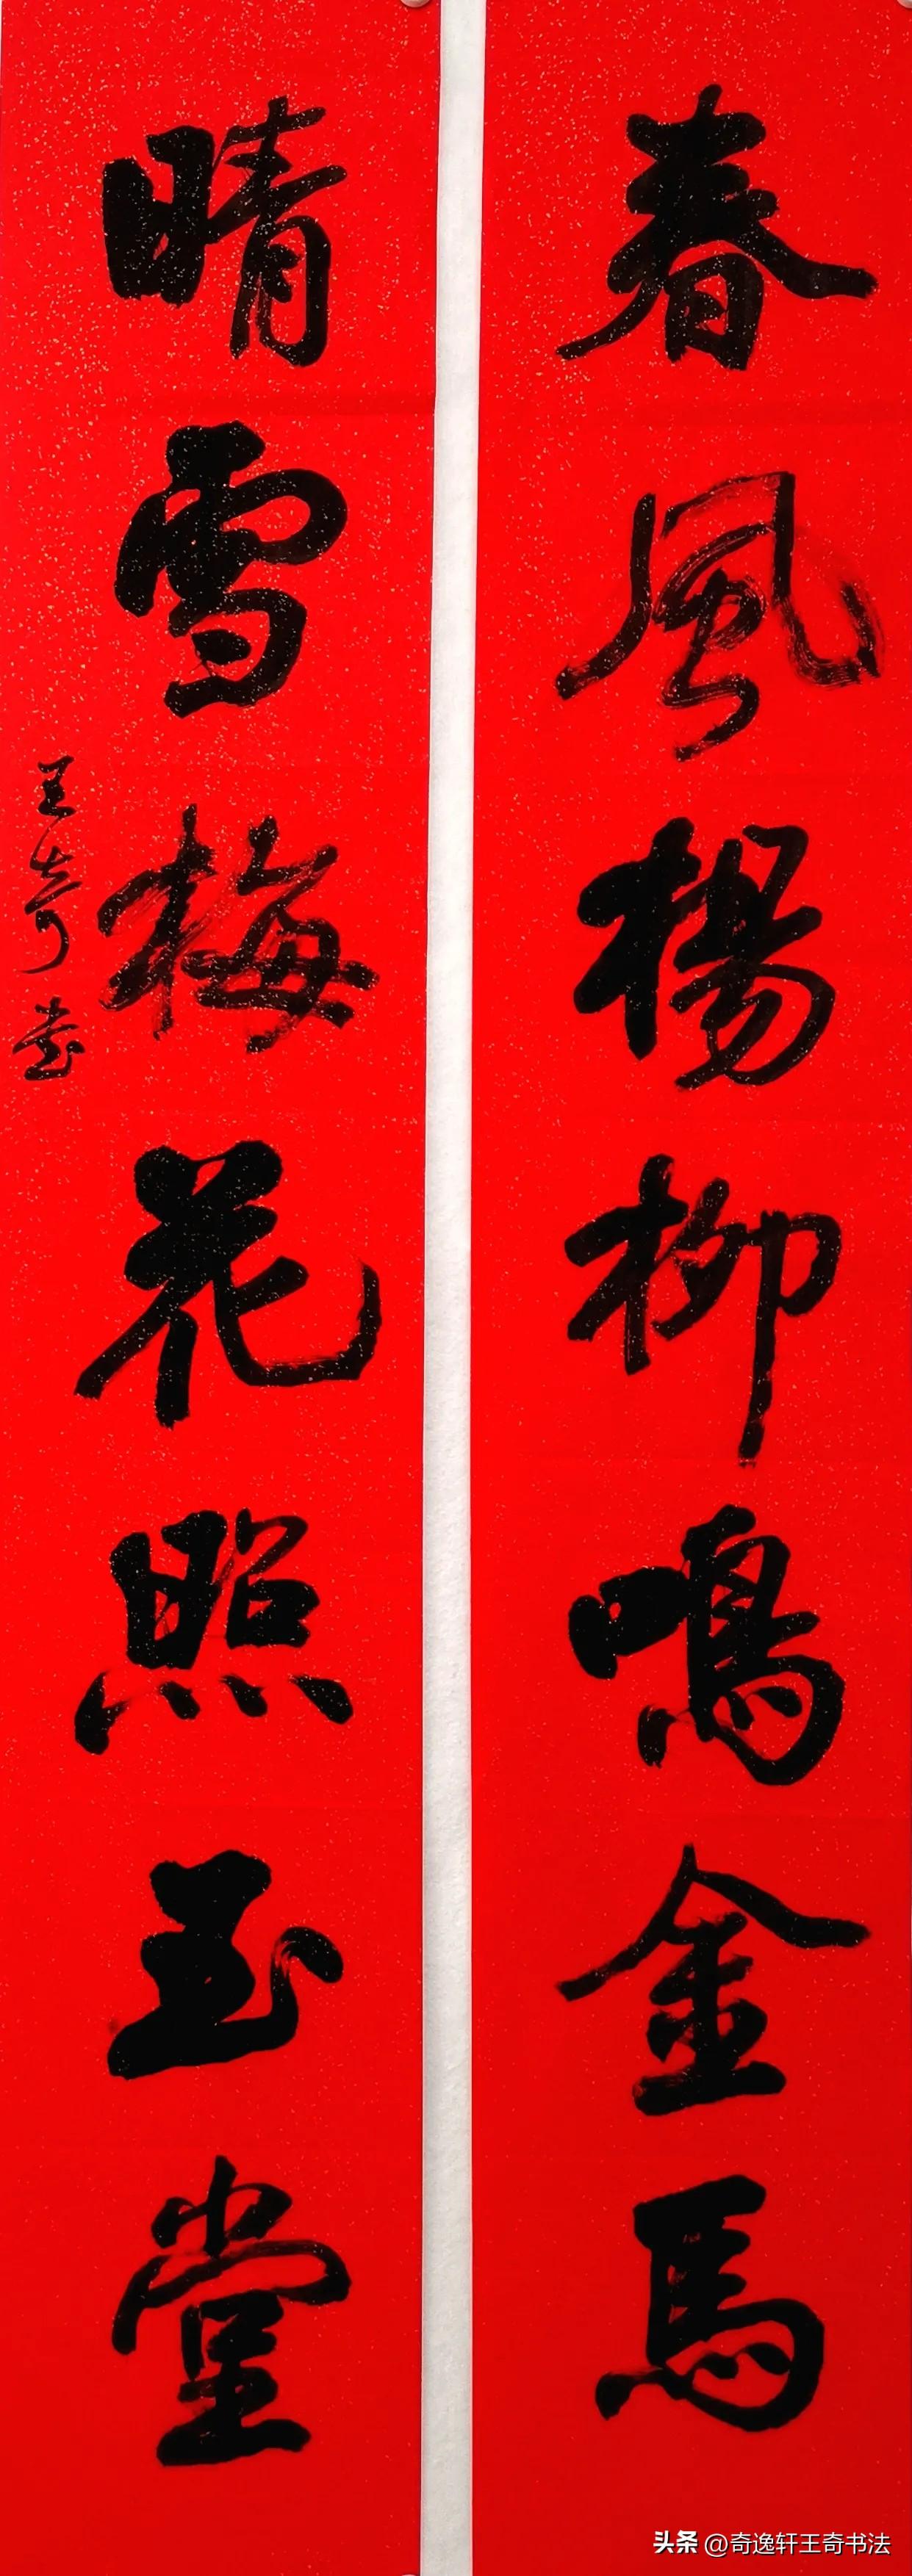 春風楊柳鳴金馬
晴雪梅花照玉堂
王奇書
头条 @奇逸轩王奇书法